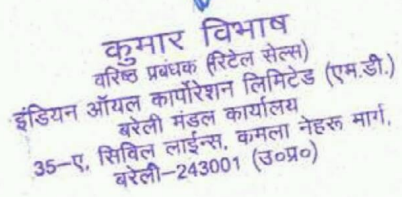 कुमार विभाष
वरिष्ठ प्रबंधक (रिटेल सेल्स)
इंडियन ऑयल कार्पोरेशन लिमिटेड (एम.डी.)
बरेली मंडल कार्यालय
35–ए, सिविल लाईन्स, कमला नेहरू मार्ग,
बरेली–243001 (उ०प्र०)